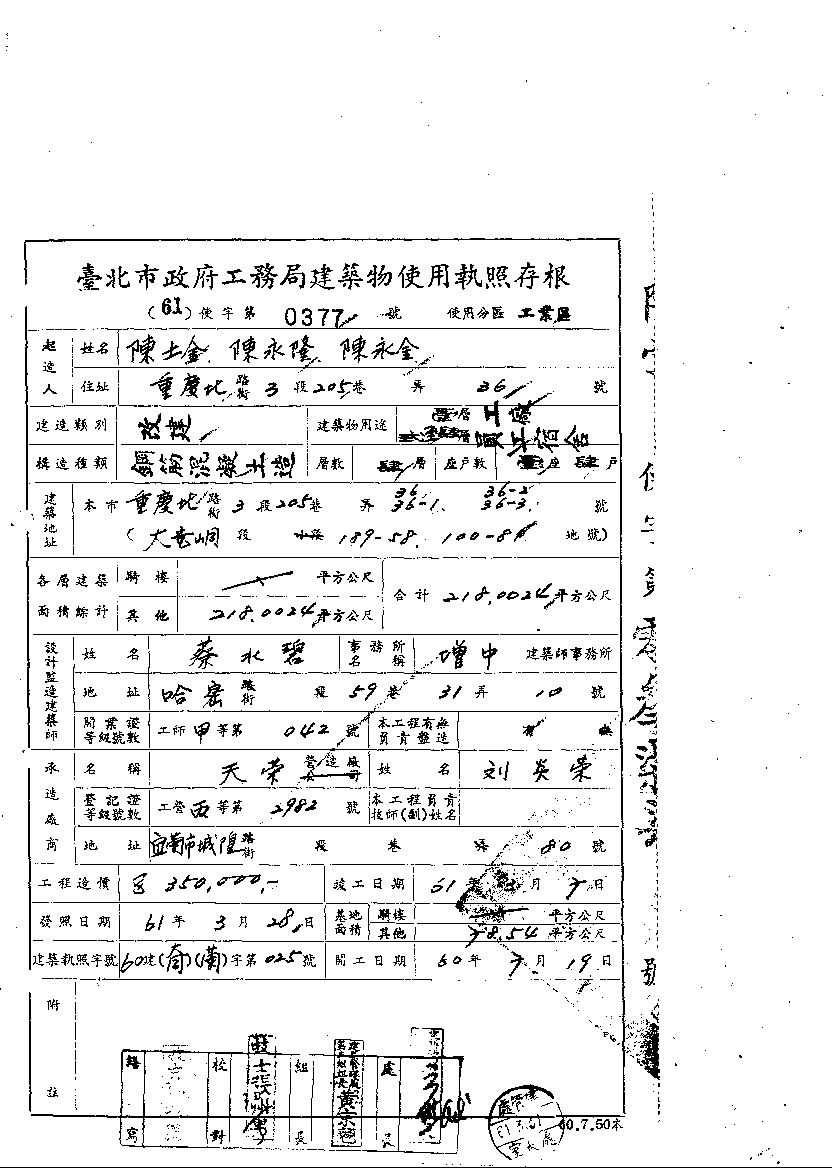 臺北市政府工務局建築物使用執照存根
(61)使字第 0377 號 使用分區 工業區
起造人 姓名 陳土金、陳永隆、陳永金
住址 重慶北路街 3 段 205 巷 弄 36 號
建造類別 改建 建築物用途 層 工廠
員工宿舍
構造種類 鋼筋混凝土造 層數 肆層 座戶數 座 肆 戶
建築地址 本市 重慶北路街 3 段 205 巷 弄 36. 36-1、 36-2 36-3. 號
(大龍峒 段 小段 189-58. 100-8 地號)
各層建築面積綜計 騎樓 平方公尺 合計 218.0024 平方公尺
其他 218.0024 平方公尺
設計監造建築師 姓名 蔡水碧 事務所名稱 增中 建築師事務所
地址 哈密路街 段 59 巷 31 弄 10 號
開業證等級號數 工師甲等第 042 號 本工程有無負責監造 有 無
承造廠商 名稱 天榮 營造廠公司 姓名 刘英榮
登記證等級號數 工營丙等第 2982 號 本工程負責技師(副)姓名
地址 宜蘭市城隍路街 段 巷 弄 80 號
工程造價 350,000,- 竣工日期 61 年 3 月 日
發照日期 61 年 3 月 28 日 基地面積 騎樓 平方公尺
其他 78.54 平方公尺
建築執照字號 60建( )(蘭)字第 025 號 開工日期 60 年 7 月 19 日
附註
繕寫 校對 組長 處長
60.7.50本